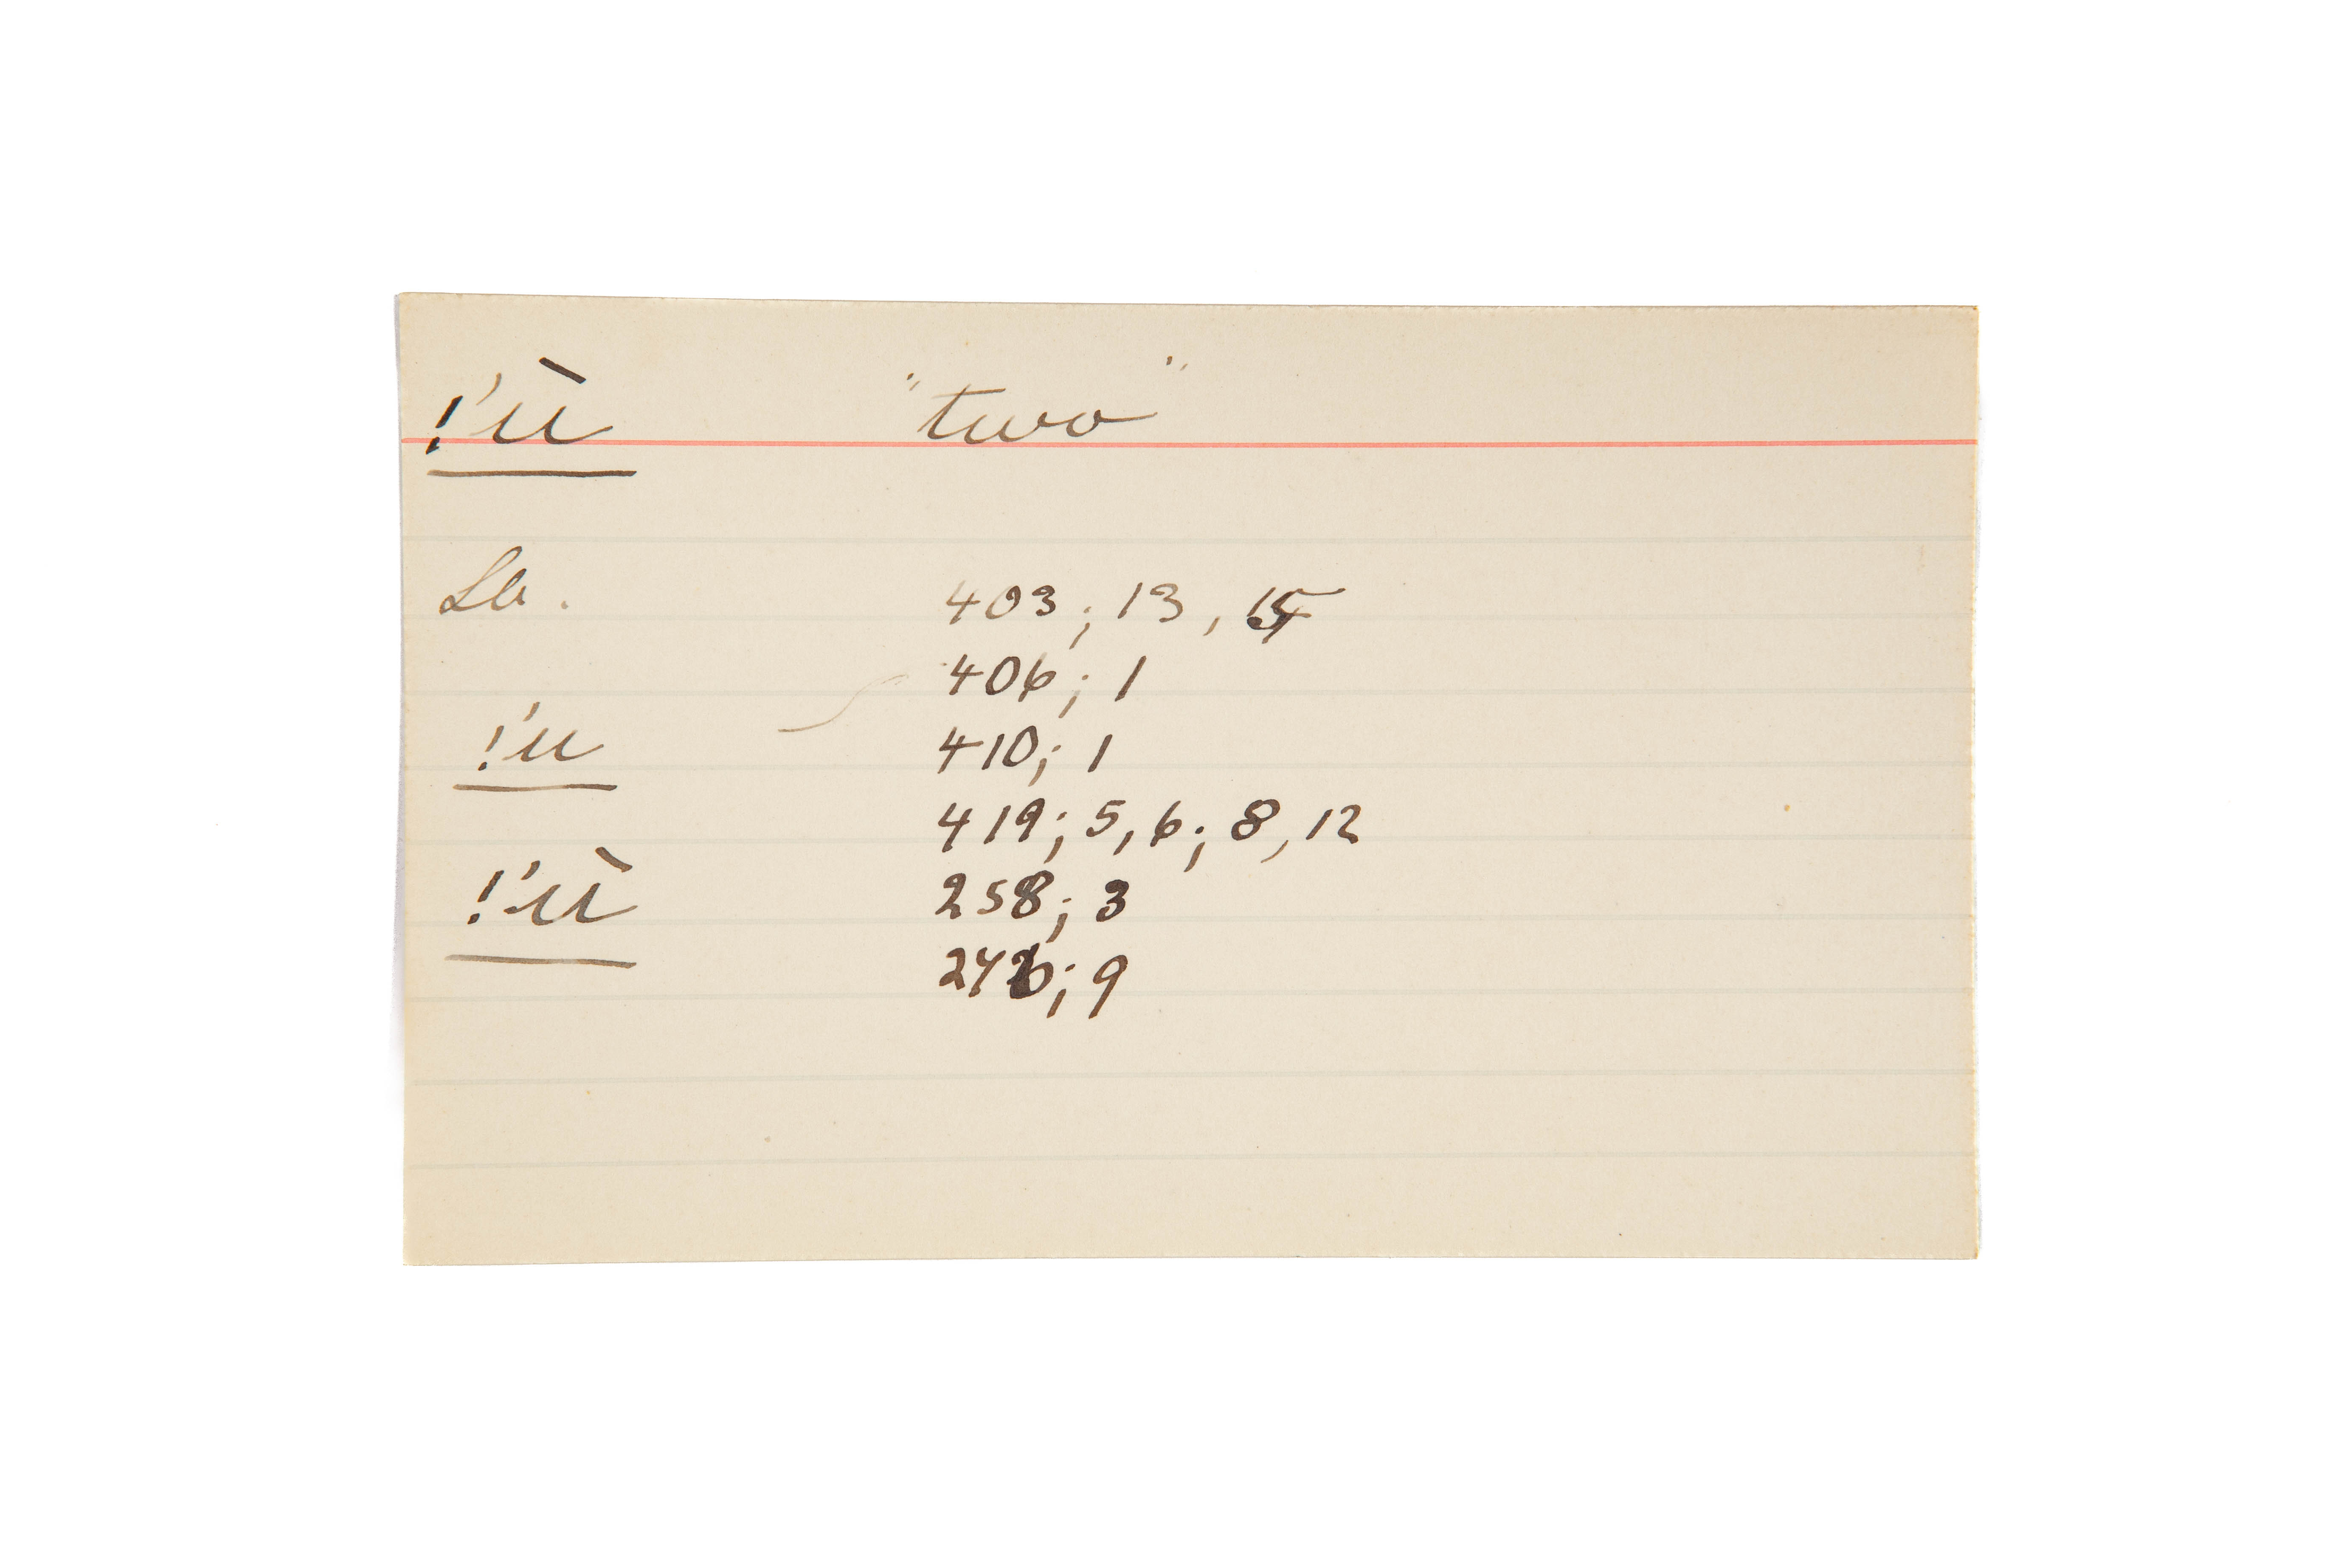 !'ū "two"
Ll. 403; 13, 15
406; 1
!'u 410; 1
419; 5, 6; 8, 12
!'ū 258; 3
9